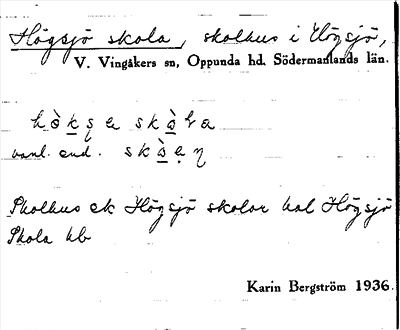 Högsjö skola, skolhus i Högsjö,
V. Vingåkers sn, Oppunda hd. Södermanlands län.
vanl. end.
Skolhus ek Högsjö skolor hal Högsjö
Skola hb
Karin Bergström 1936.